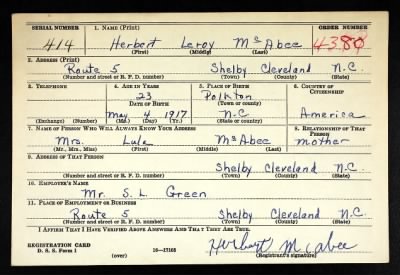 SERIAL NUMBER 1. NAME (Print) ORDER NUMBER
414 Herbert Leroy McAbee 4380
(First) (Middle) (Last)
2. ADDRESS (Print)
Route 5 Shelby Cleveland N.C.
(Number and street or R. F. D. number) (Town) (County) (State)
3. TELEPHONE 4. AGE IN YEARS 5. PLACE OF BIRTH 6. COUNTRY OF CITIZENSHIP
23 Polkton
DATE OF BIRTH (Town or county)
May 4 1917 N-C America
(Exchange) (Number) (Mo.) (Day) (Yr.) (State or country)
7. NAME OF PERSON WHO WILL ALWAYS KNOW YOUR ADDRESS 8. RELATIONSHIP OF THAT PERSON
Mrs. Lula McAbee mother
(Mr., Mrs., Miss) (First) (Middle) (Last)
9. ADDRESS OF THAT PERSON
Shelby Cleveland N.C.
(Number and street or R. F. D. number) (Town) (County) (State)
10. EMPLOYER'S NAME
Mr. S. L. Green
11. PLACE OF EMPLOYMENT OR BUSINESS
Route 5 Shelby Cleveland N.C.
(Number and street or R. F. D. number) (Town) (County) (State)
I AFFIRM THAT I HAVE VERIFIED ABOVE ANSWERS AND THAT THEY ARE TRUE.
REGISTRATION CARD
D. S. S. Form 1 16-17105 Herbert Mcabee
(over) (Registrant's signature)